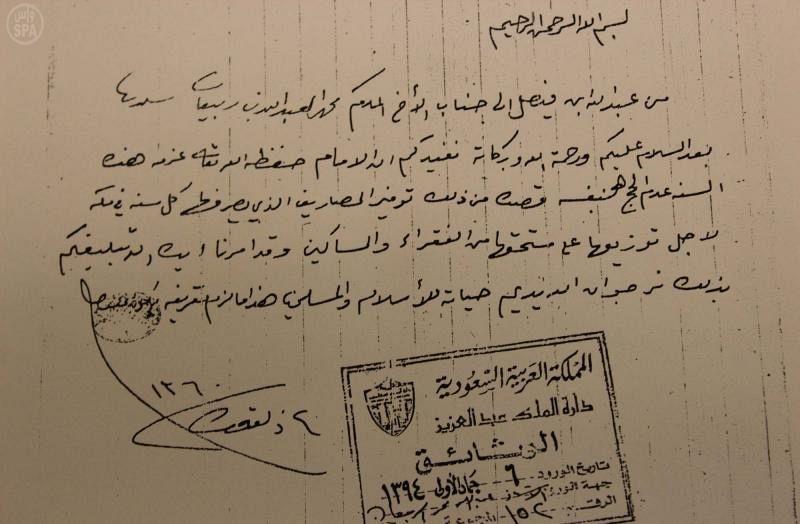 واس
SPA
بسم الله الرحمن الرحيم
من عبدالله ابن فيصل الى جناب الأخ المكرم عبدالله بن ربيعان سلمه
بعد السلام عليكم ورحمة الله وبركاته نفيدكم ان الامام حفظه الله تعالى عزم هذه
السنه عدم الحج بنفسه قصده من ذلك توفير المصاريف الذي يصرفها كل سنه في مكه
لاجل توزيعها على مستحقها من الفقراء والمساكين وقد امرنا بتبليغكم
بذلك نرجو ان الله يديم حياته للأسلام والمسلمين هذا ما لزم تعريفه
١٣٦٠
ذي القعده
المملكة العربية السعودية
دارة الملك عبد العزيز
الوثائق
تاريخ الورود ٦ جمادى الأولى ١٣٩٤
جهة الورود
الرقم ١٥٢